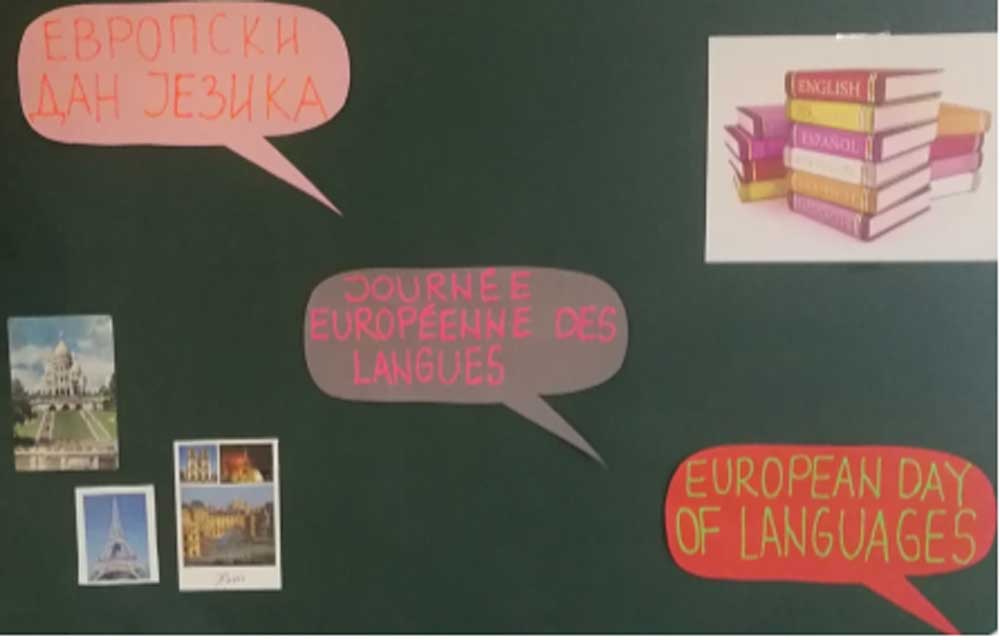 ЕВРОПСКИ
ДАН ЈЕЗИКА
ENGLISH
ESPAÑOL
JOURNÉE
EUROPÉENNE DES
LANGUES
EUROPEAN DAY
OF LANGUAGES
Paris